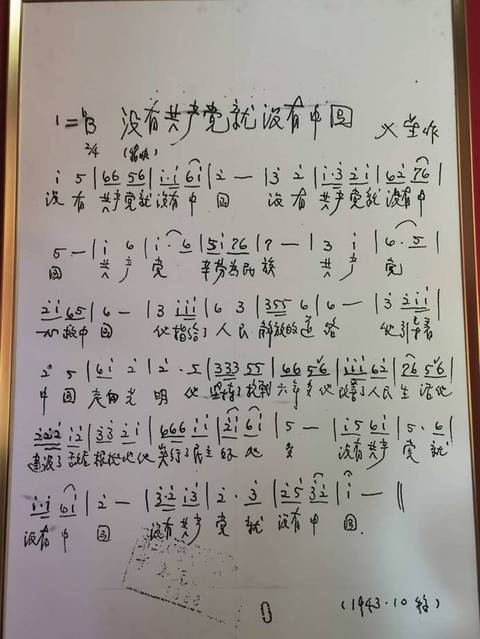 1=♭B 没有共产党就没有中国 火星作
2/4
i 5 | 66 56 | i·i 6i | 2 — | 3 2 | i·3 2i | 62 76 |
没有共产党就没有中国 没有共产党就没有中
5 — | i 6 | i·6 | 5i 76 | 7 — | 3 i | 6·5 |
国 共产党 辛劳为民族 共产党
2i 65 | 6 — | 3 iii | 6 3 | 355 6 | 6 — | 3 2ii |
一心救中国 他指给了人民解放的道路 他引导着
2 5 | 6i 2 | 2·5 | 333 55 | 66 56 | iii 62 | 76 56 |
中国走向光明 他坚持了抗战六年多他改善了人民生活他
222 i2 | 33 2i | 666 ii | 2i 6i | 5 — | i5 6i | 5·6 |
建设了敌后根据地他实行了民主好处多 没有共产党就
i·i 6i | 2 — | 3·2 i3 | 2·3 | 25 32 | i — ‖
没有中国 没有共产党就没有中国
(1943·10稿)